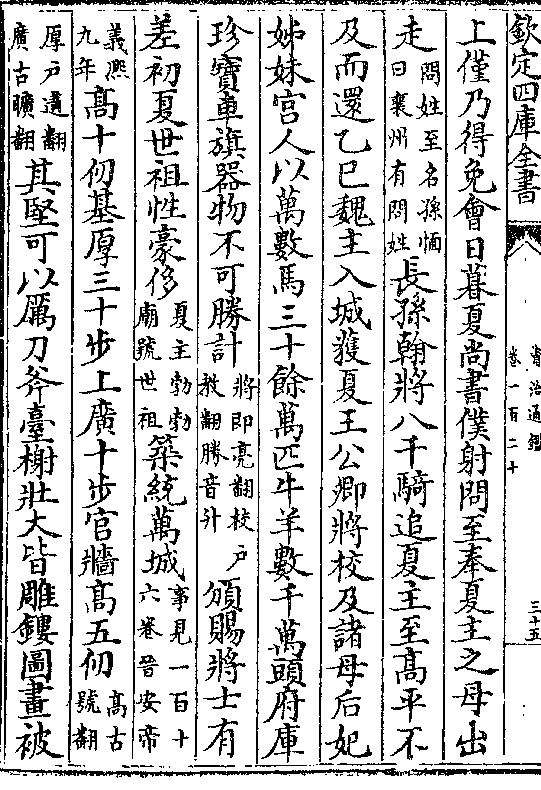 欽定四庫全書
資治通鑑
卷一百二十
三十五
上僅乃得免會日暮夏尚書僕射問至奉夏主之母出
走問姓至名孫愐曰襄州有問姓長孫翰將八千騎追夏主至高平不
及而還乙巳魏主入城獲夏王公卿將校及諸母后妃
姊妹宫人以萬數馬三十餘萬匹牛羊數千萬頭府庫
珍寶車旗器物不可勝計將即亮翻校戶教翻勝音升頒賜將士有
差初夏世祖性豪侈夏主勃勃廟號世祖築統萬城事見一百十六卷晉安帝
義熙九年髙十仞基厚三十步上廣十步宫牆髙五仞髙古號翻
厚戶遘翻廣古曠翻其堅可以厲刀斧臺榭壯大皆雕鏤圖畫被